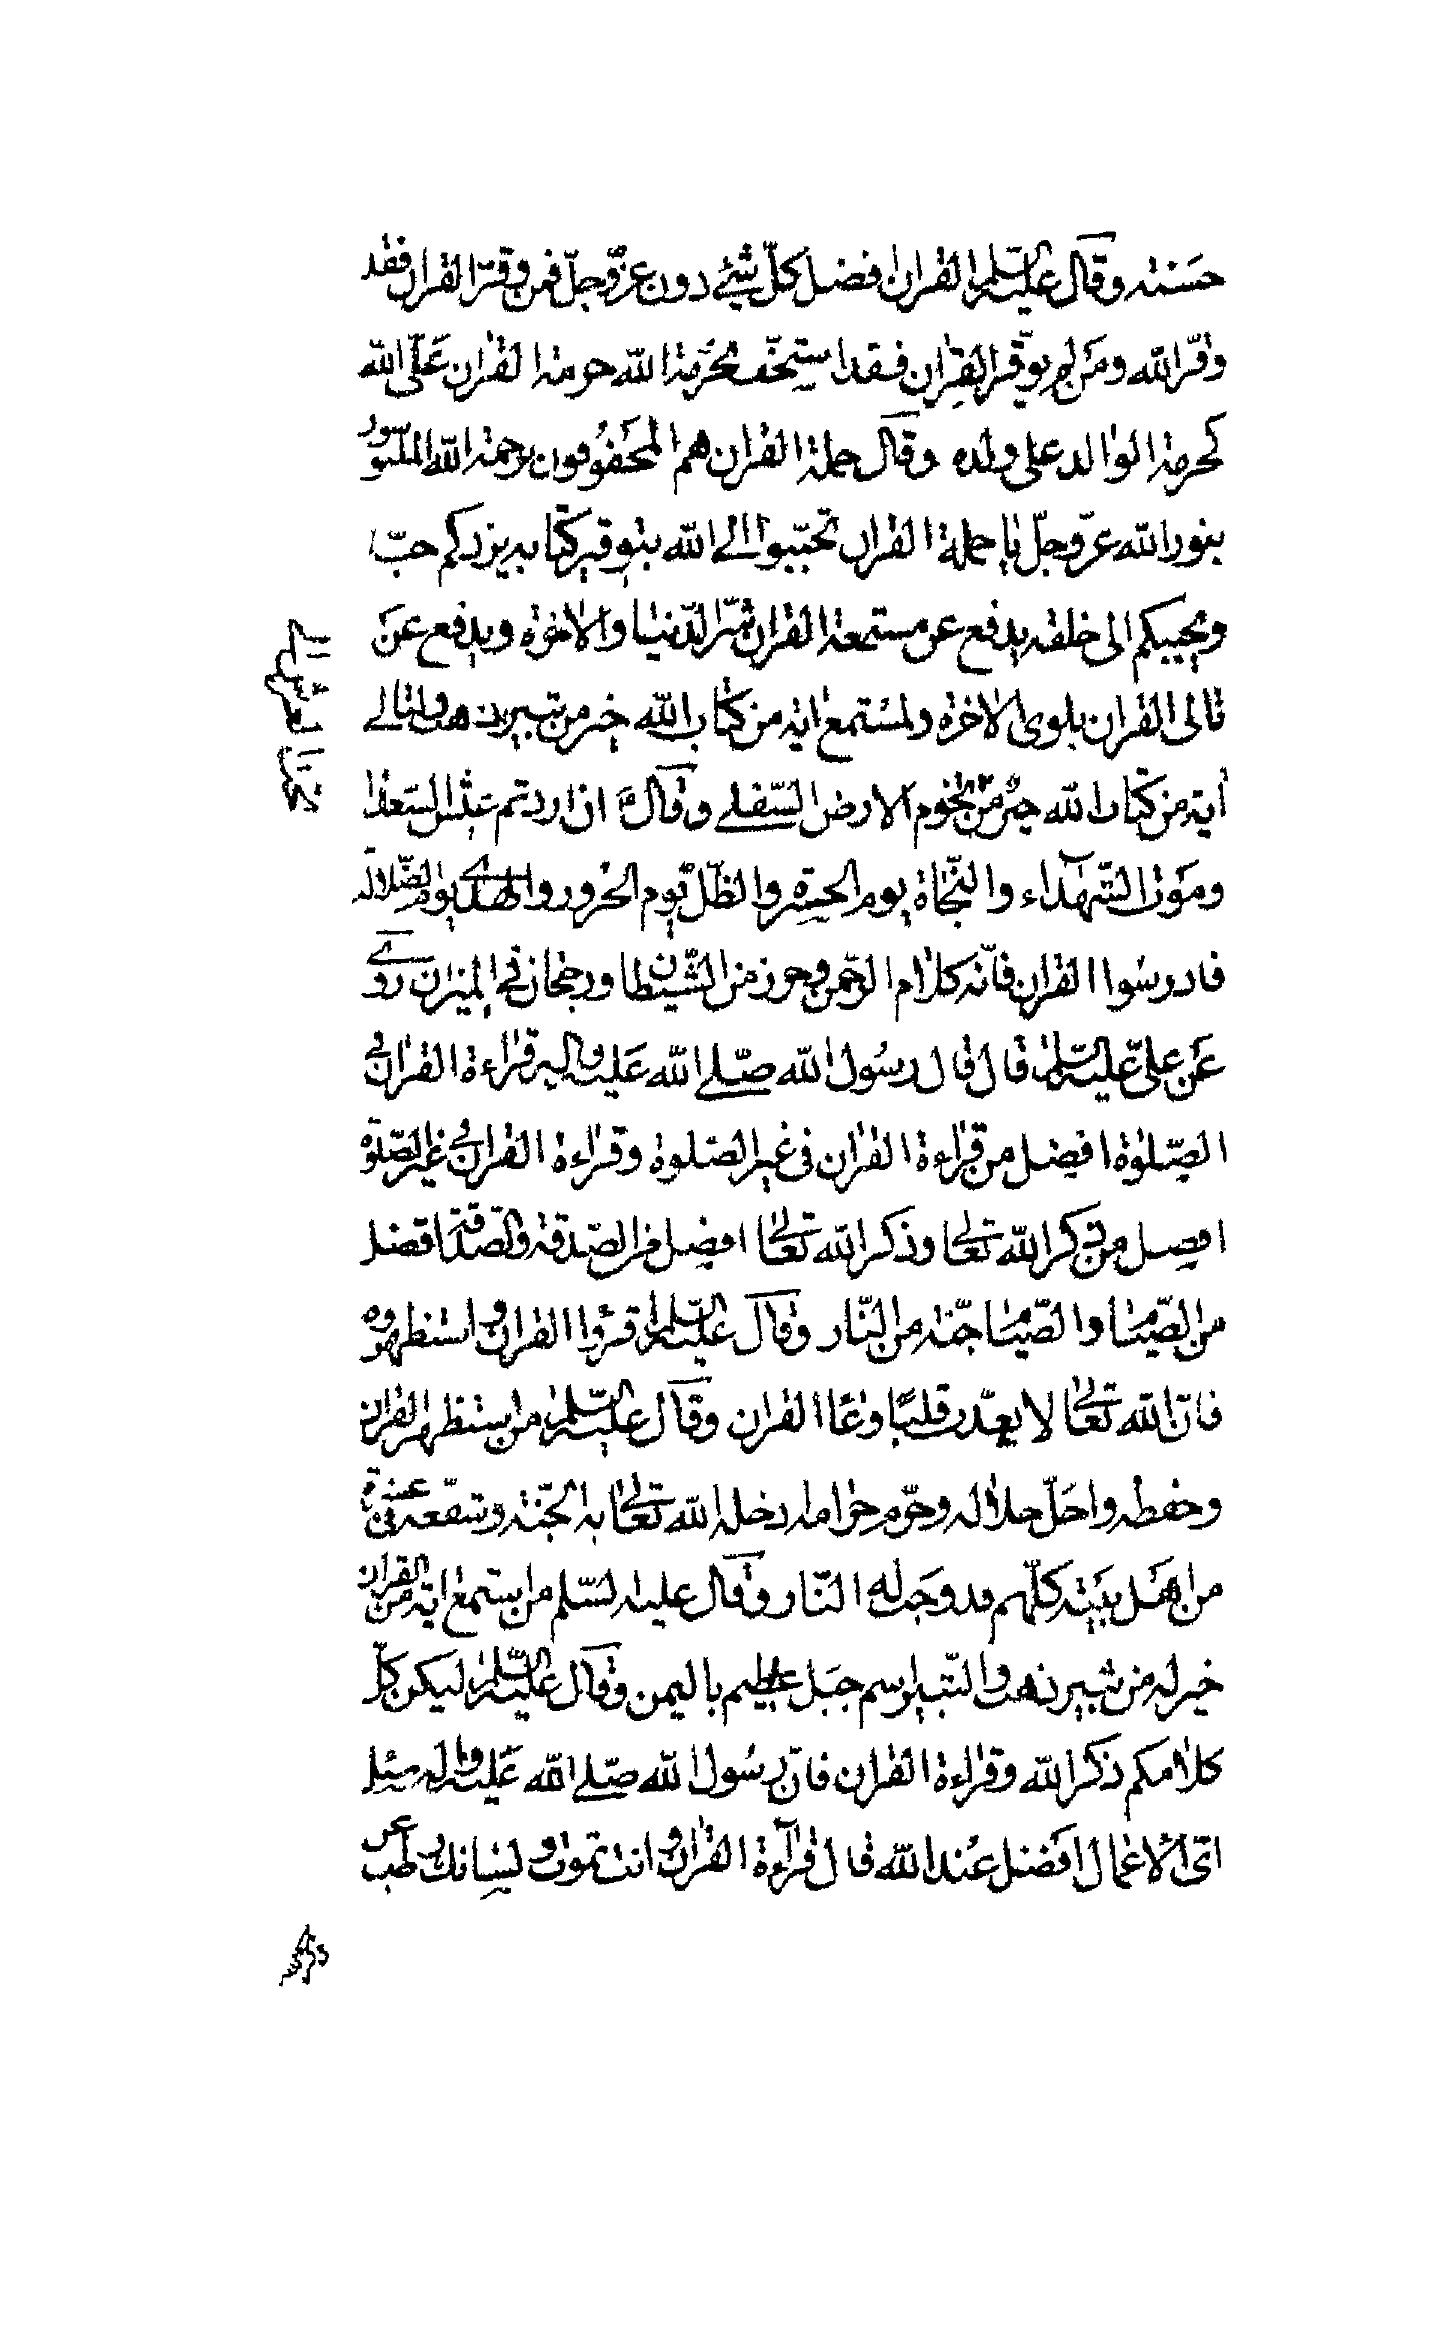 حسنة وقال عليه السلم القران افضل كلّ شيئ دون عزّ وجلّ فمن وقرّ القران فقد
وقّر الله ومن لم يوقّر القران فقد استخفّ بحُرمة الله حرمة القران على الله
كحرمة الوالد على ولده وقال حملة القران هم المحفُوفون برحمة الله الملبسور
بنور الله عزّ وجلّ يا حملة القران تحبّبوا الى الله بتوقير كتابه يزدكم حبّا
ويحببكم الى خلقه يدفع عن مستمعة القران شرّ الدّنيا والاخرة ويدفع عن
تالى القران بلوى الاخرة ولمستمع اية من كتاب الله خير من ثبير ذهبا ولتالى
اية من كتاب الله خيرٌ من تخوم الارض السّفلى وقال ان اردتم عيش السعدا
وموت الشّهداء والنّجاة يوم الحسرة والظّلّ يوم الحرور والهدى يوم الضّلالة
فادرسُوا القران فانّه كلام الرّحمن وحرز من الشّيطان ورجحان في الميزان روى
عن علىّ عليه السّلم قال قال رسُول الله صلّى الله عليه واله قراءة القران في
الصّلوة افضل من قراءة القران في غير الصلوة وقراءة القران في غير الصّلوة
افضل من ذكر الله تعالى وذكر الله تعالى افضل من الصّدقة والصّدقة افضل
من الصّيام والصّيام جنّة من النّار وقال عليه السّلم اقرؤا القران واستظهروه
فانّ الله تعالى لا يعذّب قلبًا وعا القران وقال عليه السّلم من استظهر القران
وحفظه واحلّ حلاله وحرّم حرامه ادخله الله تعالى به الجنّة وشفّعه في عشرة
من اهل بيته كلّهم قد وجب له النّار وقال عليه السّلم من استمع اية من القران
خير له من ثبير ذهبا والثبير اسم جبل عظيم باليمن وقال عليه السّلم ليكن كلّ
كلامكم ذكر الله وقراءة القران فانّ رسُول الله صلّى الله عليه واله سئل
اىّ الاعمال افضل عند الله قال قراءة القران وانت تموت ولسانك رطب عن